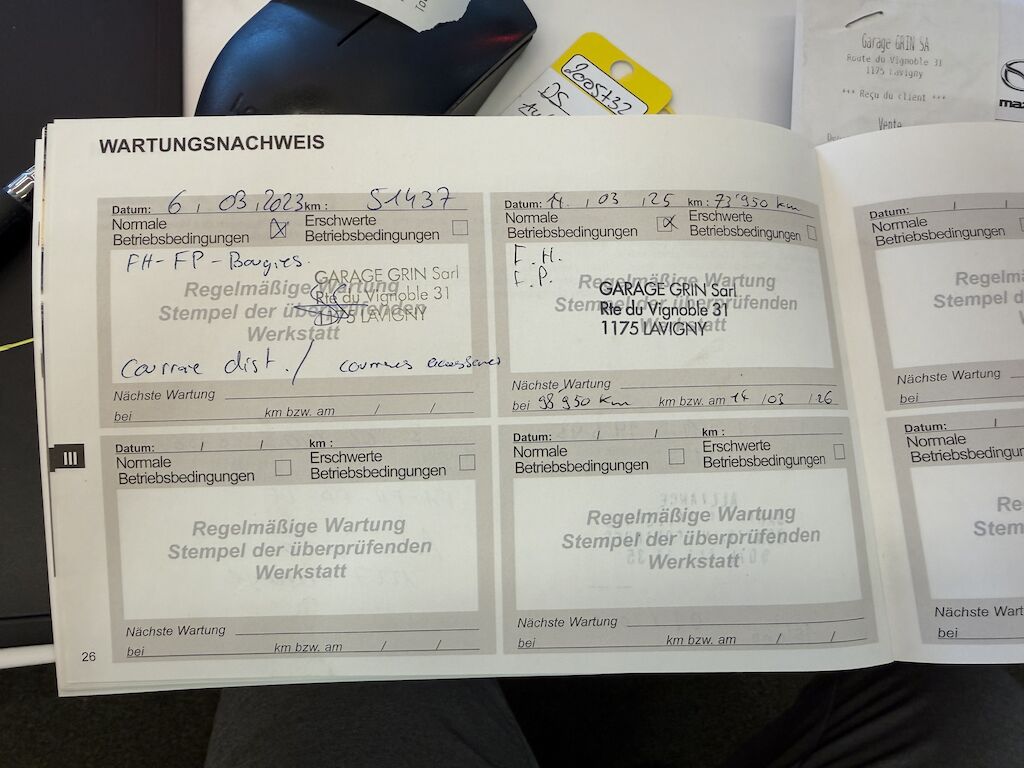 2005732
DS
Garage GRIN SA
Route du Vignoble 31
1175 Lavigny
*** Reçu du client ***
Vente
WARTUNGSNACHWEIS
Datum: 6 / 03 / 2023 km : 51437
Normale Betriebsbedingungen ☒ Erschwerte Betriebsbedingungen ☐
FH - FP - Bougies.
Regelmäßige Wartung
Stempel der überprüfenden
Werkstatt
GARAGE GRIN Sarl
Rte du Vignoble 31
1175 LAVIGNY
Courroie dist. / courroies accessoires
Nächste Wartung
bei km bzw. am / /
Datum: 14 / 03 / 25 km : 73'950 km
Normale Betriebsbedingungen ☒ Erschwerte Betriebsbedingungen ☐
F.H.
F.P.
Regelmäßige Wartung
Stempel der überprüfenden
Werkstatt
GARAGE GRIN Sarl
Rte du Vignoble 31
1175 LAVIGNY
Nächste Wartung
bei 98950 km km bzw. am 14 / 03 / 26
III
Datum: / / km :
Normale Betriebsbedingungen ☐ Erschwerte Betriebsbedingungen ☐
Regelmäßige Wartung
Stempel der überprüfenden
Werkstatt
Nächste Wartung
bei km bzw. am / /
Datum: / / km :
Normale Betriebsbedingungen ☐ Erschwerte Betriebsbedingungen ☐
Regelmäßige Wartung
Stempel der überprüfenden
Werkstatt
Nächste Wartung
bei km bzw. am / /
26
Datum: /
Normale
Betriebsbedingungen
Stempel d
Nächste Wartung
bei
Datum: /
Normale
Nächste Wart
bei